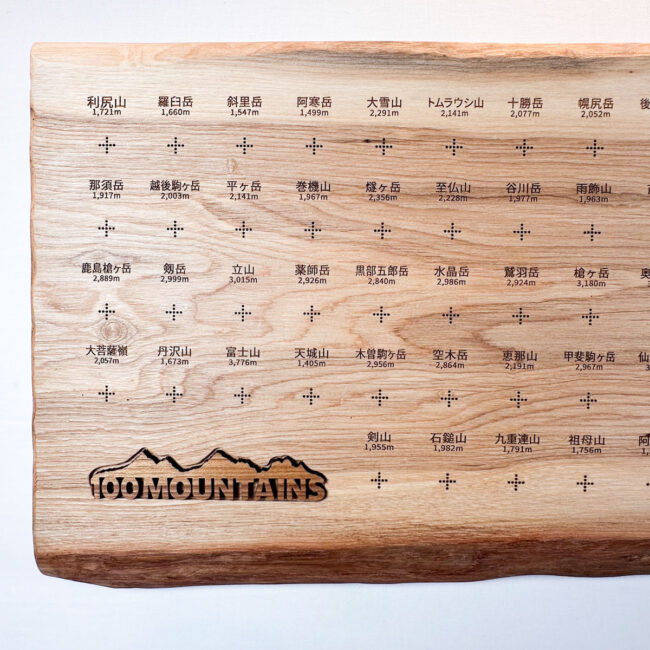 利尻山 羅臼岳 斜里岳 阿寒岳 大雪山 トムラウシ山 十勝岳 幌尻岳 後
1,721m 1,660m 1,547m 1,499m 2,291m 2,141m 2,077m 2,052m
那須岳 越後駒ヶ岳 平ヶ岳 巻機山 燧ヶ岳 至仏山 谷川岳 雨飾山
1,917m 2,003m 2,141m 1,967m 2,356m 2,228m 1,977m 1,963m
鹿島槍ヶ岳 剱岳 立山 薬師岳 黒部五郎岳 水晶岳 鷲羽岳 槍ヶ岳 奥
2,889m 2,999m 3,015m 2,926m 2,840m 2,986m 2,924m 3,180m
大菩薩嶺 丹沢山 富士山 天城山 木曽駒ヶ岳 空木岳 恵那山 甲斐駒ヶ岳 仙
2,057m 1,673m 3,776m 1,405m 2,956m 2,864m 2,191m 2,967m
剣山 石鎚山 九重連山 祖母山 阿
1,955m 1,982m 1,791m 1,756m
100MOUNTAINS